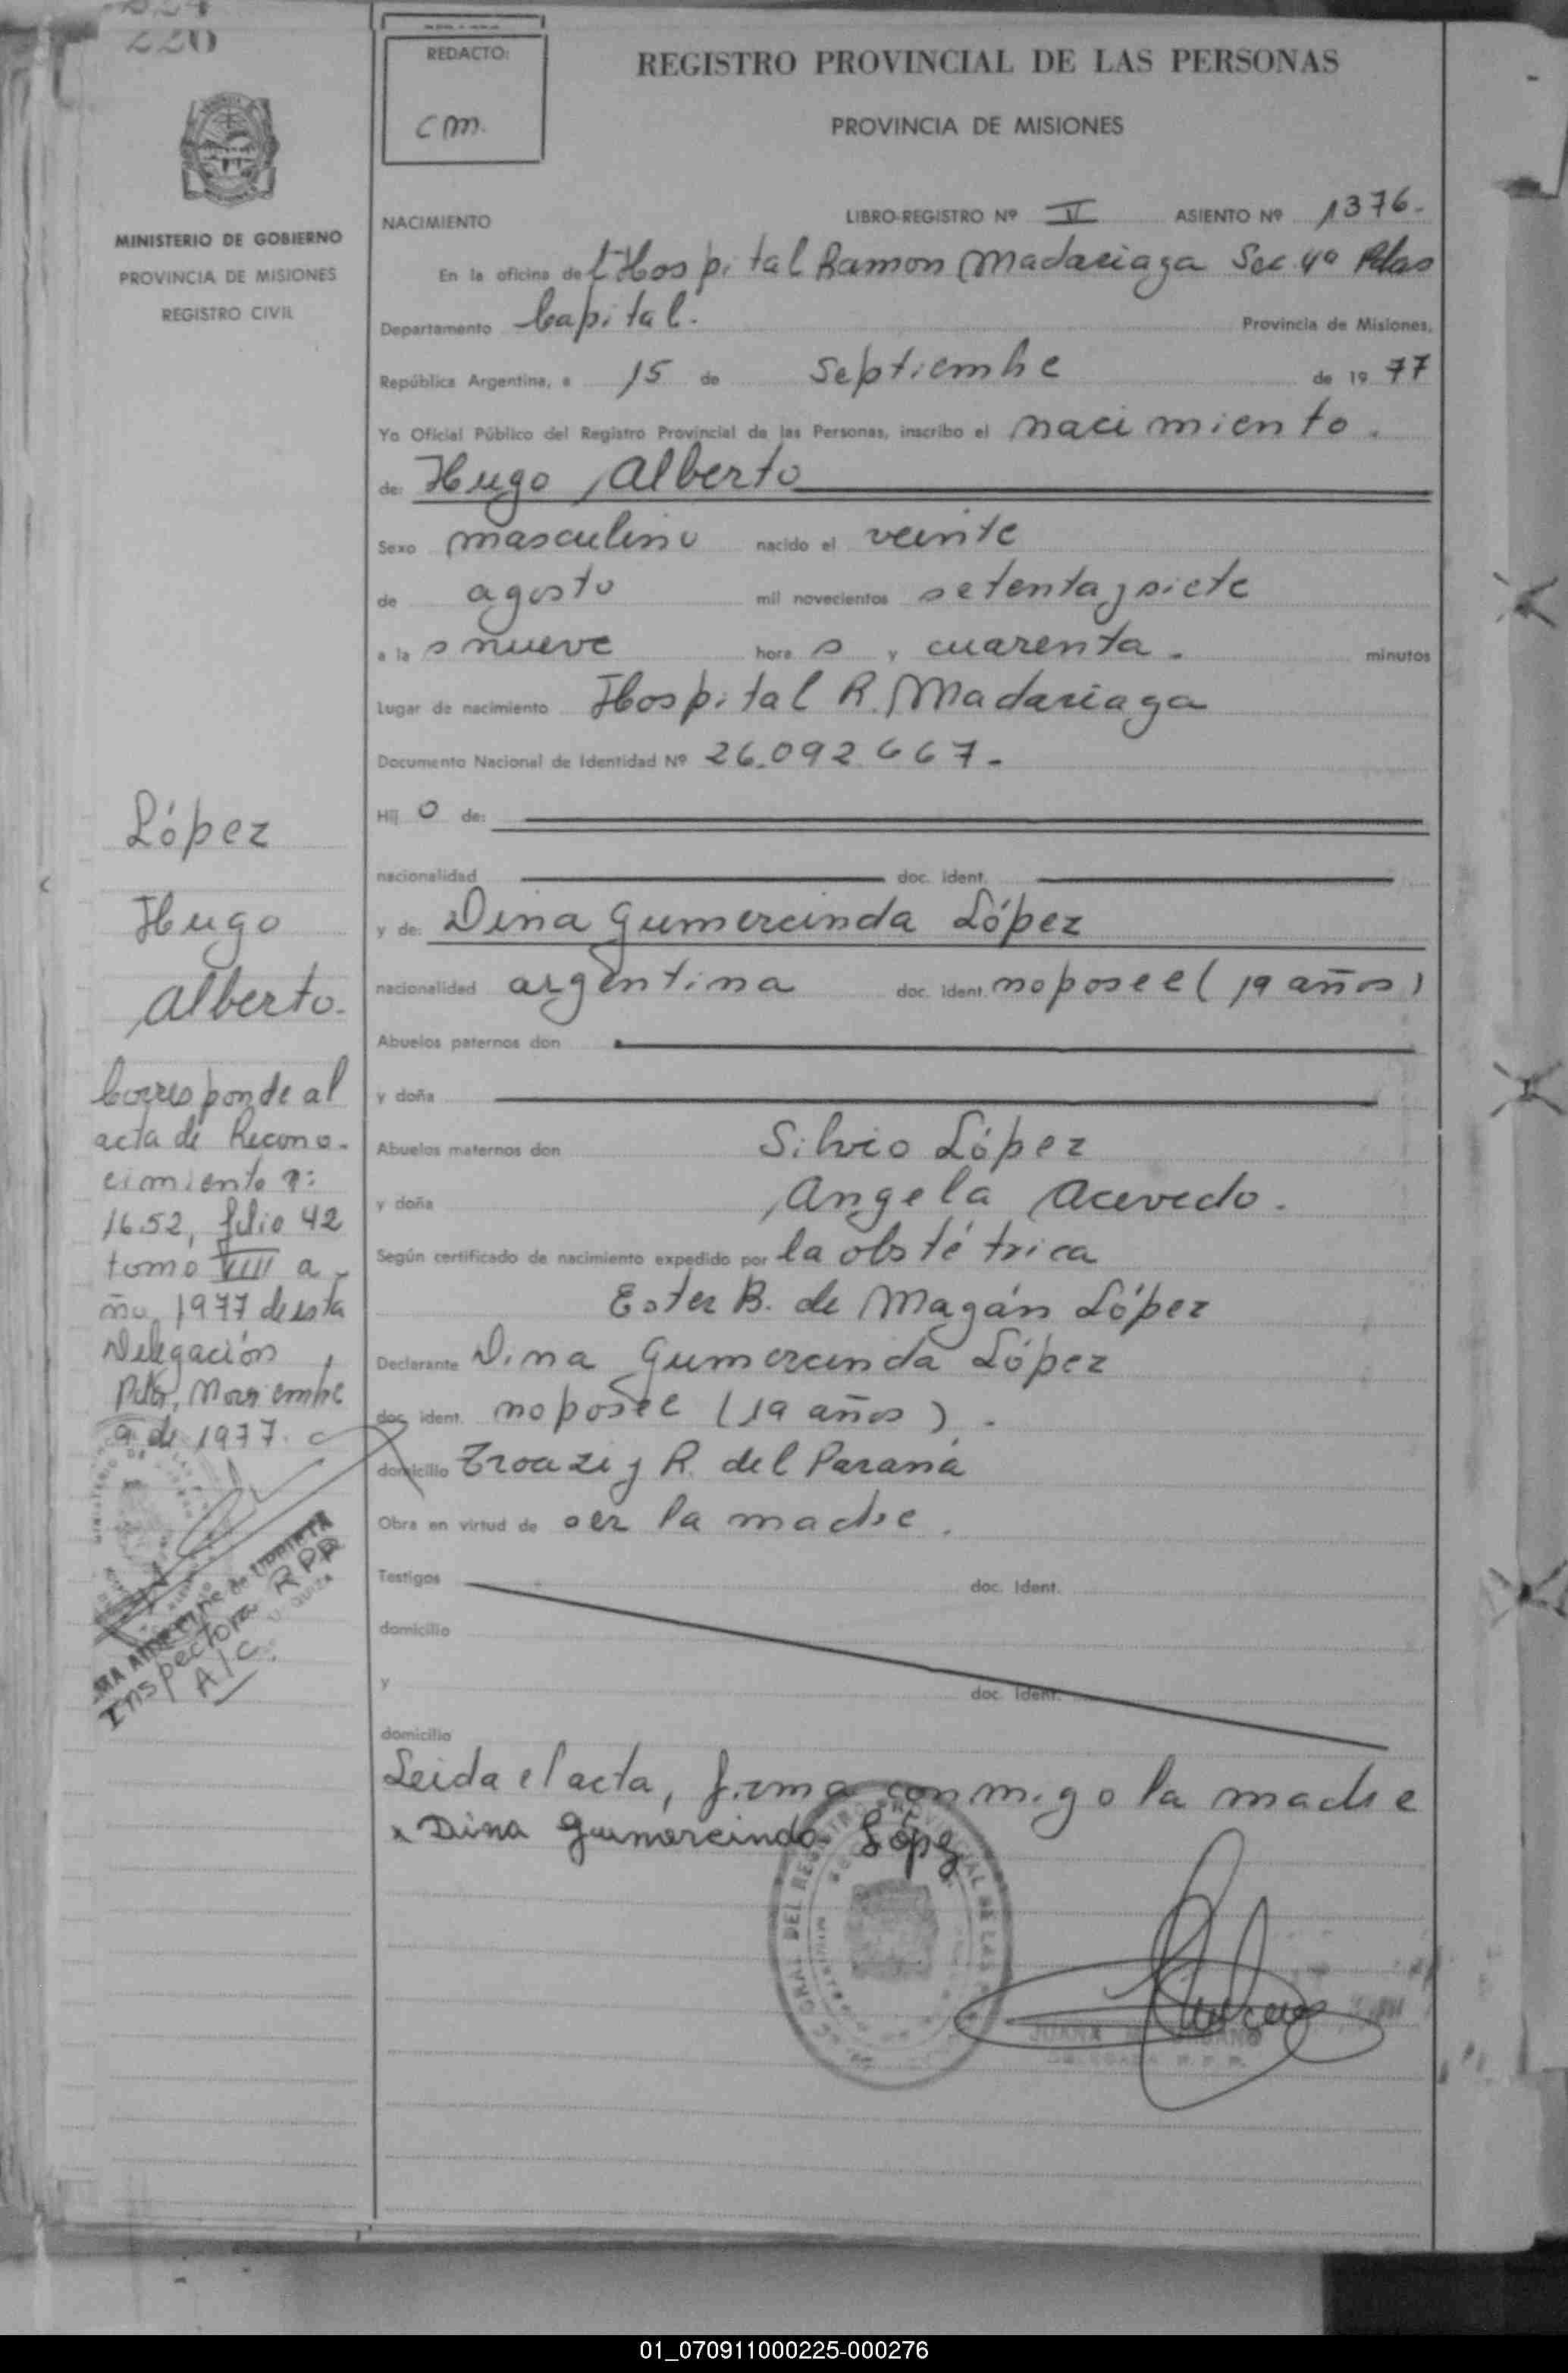 220
REDACTO:
cm.
REGISTRO PROVINCIAL DE LAS PERSONAS
PROVINCIA DE MISIONES
MINISTERIO DE GOBIERNO
PROVINCIA DE MISIONES
REGISTRO CIVIL
NACIMIENTO LIBRO-REGISTRO Nº II ASIENTO Nº 1376.
En la oficina del Hospital Ramon Madariaga Sec 4º Pdas
Departamento Capital. Provincia de Misiones,
República Argentina, a 15 de Septiembre de 19 77
Yo Oficial Público del Registro Provincial de las Personas, inscribo el nacimiento.
de: Hugo Alberto
Sexo masculino nacido el veinte
de agosto mil novecientos setenta y siete
a la s nueve hora s y cuarenta. minutos
Lugar de nacimiento Hospital R. Madariaga
Documento Nacional de Identidad Nº 26.092.667.-
Hij o de:
nacionalidad doc. ident.
y de: Dina Gumercinda López
nacionalidad argentina doc. ident. no posee (19 años)
Abuelos paternos don
y doña
Abuelos maternos don Silvio López
y doña Angela Acevedo.
Según certificado de nacimiento expedido por la obstétrica
Ester B. de Magán López
Declarante Dina Gumercinda López
doc. ident. no posee (19 años).
domicilio Troazi y R. del Paraná
Obra en virtud de ser la madre.
Testigos doc. Ident.
domicilio
y doc. Ident.
domicilio
Leida el acta, firma conmigo la madre
x Dina Gumercinda López
López
Hugo
Alberto.
Corresponde al
acta de Recono-
cimiento nº:
1652, folio 42
tomo VIII a-
ño 1977 de esta
Delegación
Pdas, Noviembre
9 de 1977.
Inspectora RPP
A/C.
01_070911000225-000276